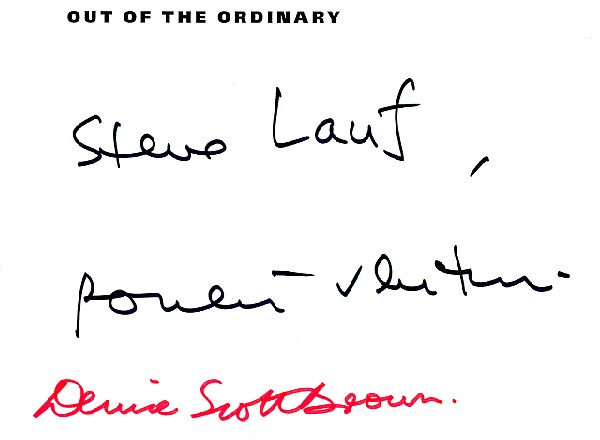 OUT OF THE ORDINARY
Steve Lauf,
Robert Venturi
Denise Scott Brown.